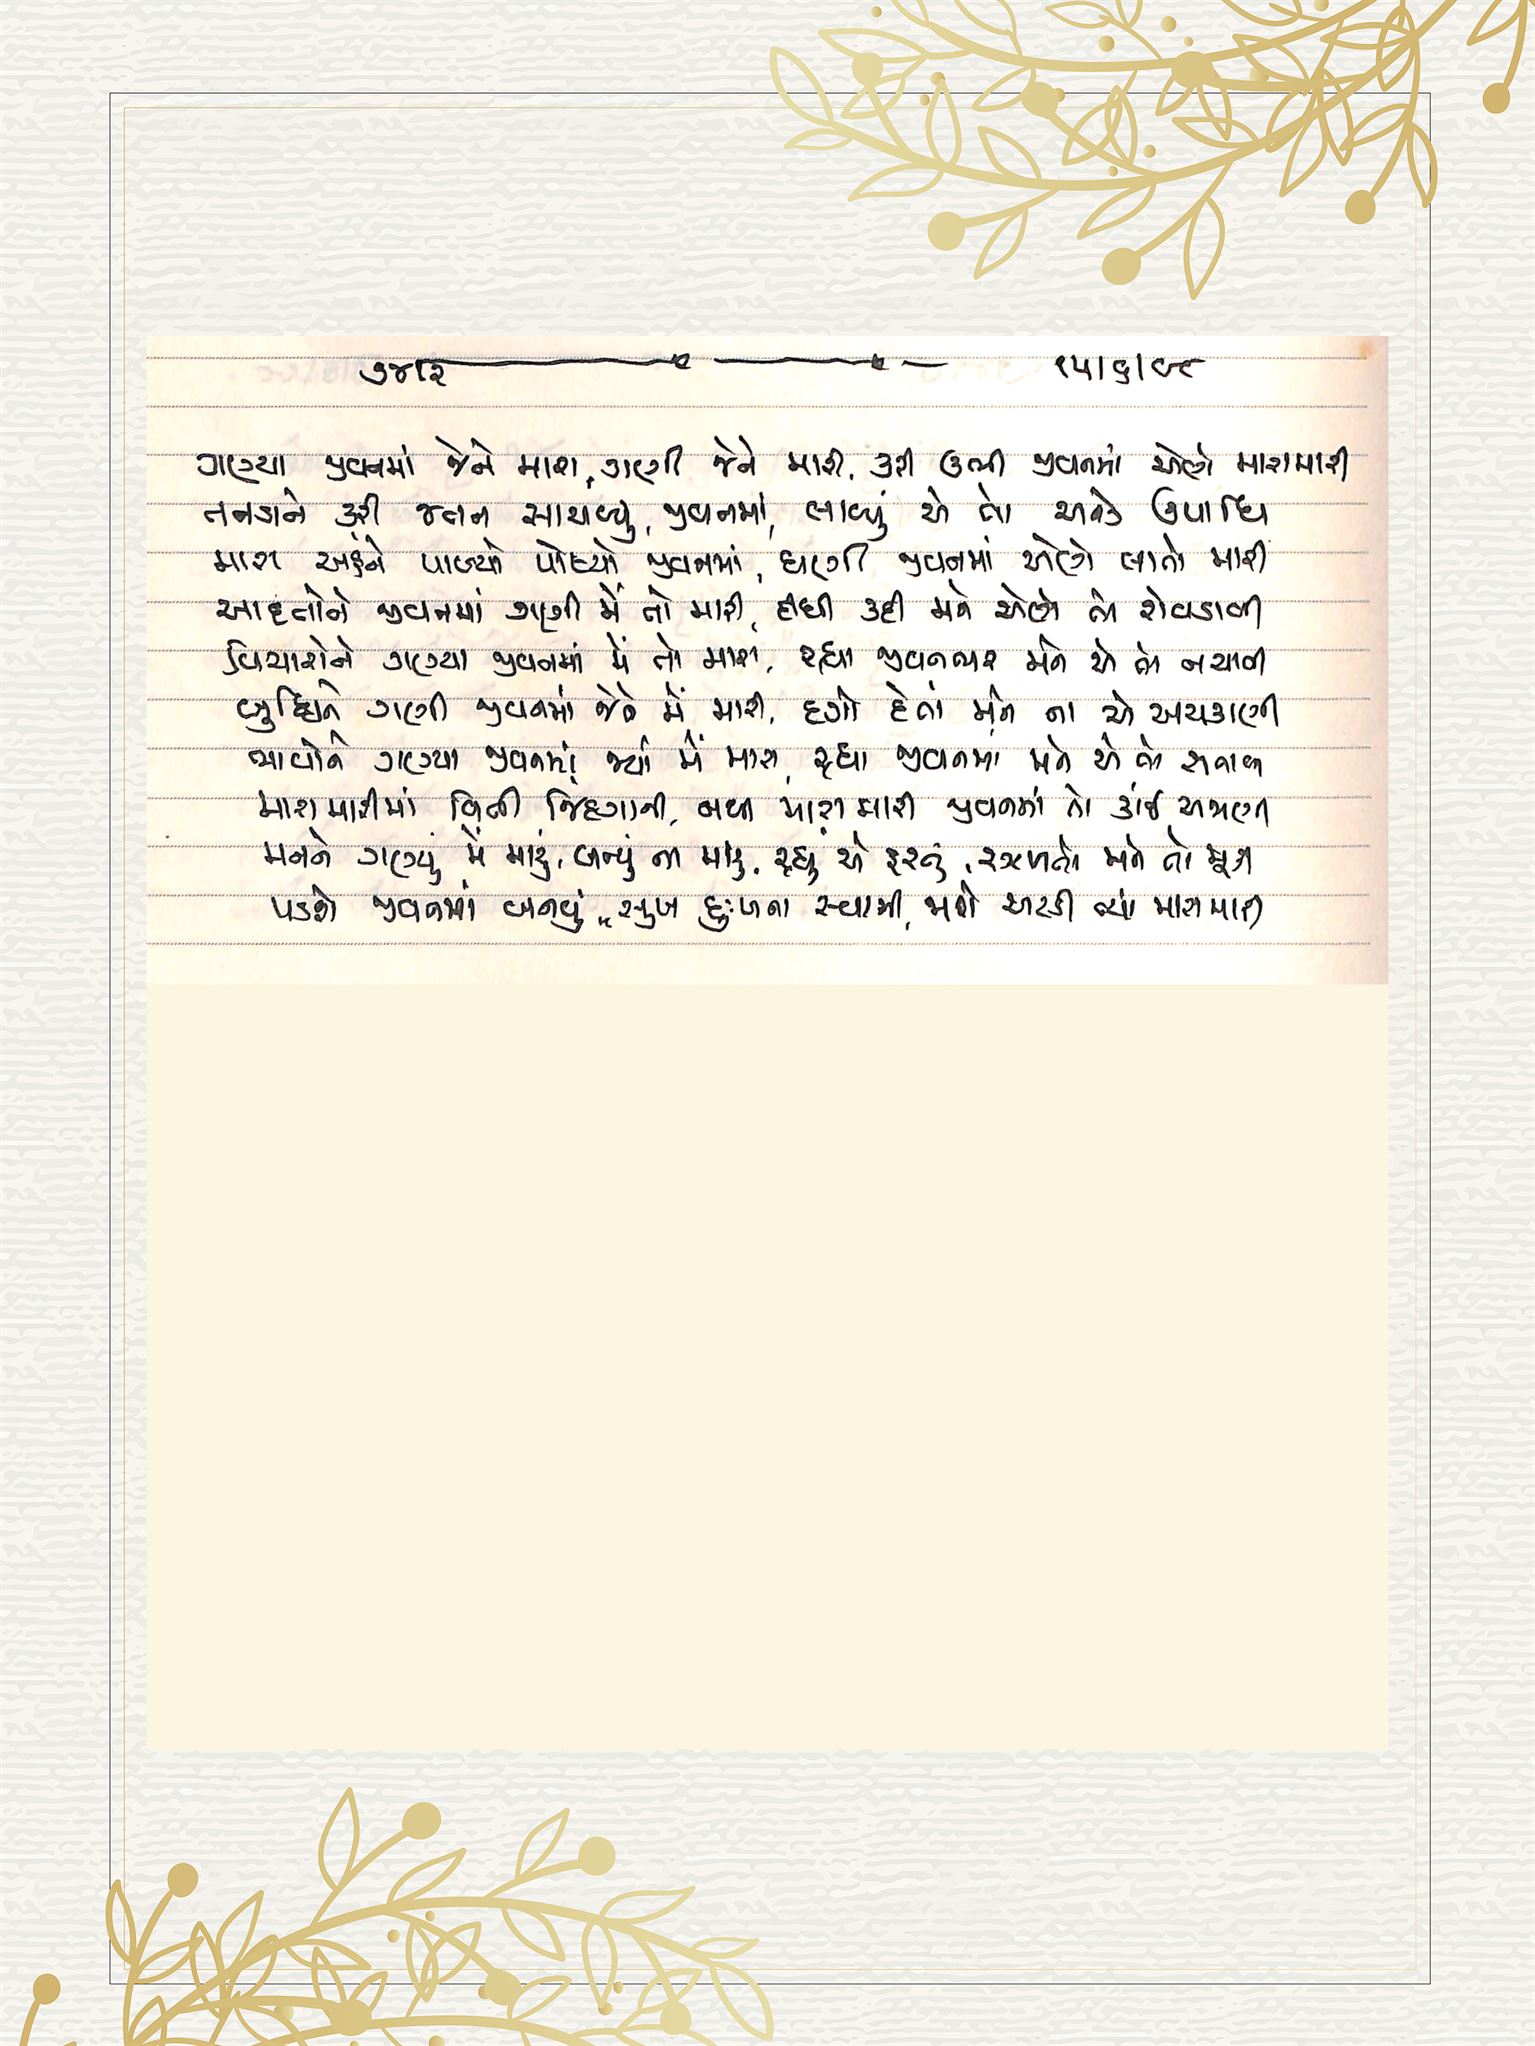 ૭૪૧૨ ૧૫/૬/૯૮
ગણ્યા જીવનમાં જેને મારા, ગણી જેને મારી, કરી ઉભી જીવનમાં એણે મારામારી
તનડાને કરી જતન સાચવ્યું, જીવનમાં, લાવ્યું એ તો અનેક ઉપાધિ
મારા અહંને પાળ્યો પોષ્યો જીવનમાં, ઘણી જીવનમાં એણે લાતો મારી
આદતોને જીવનમાં ગણી મેં તો મારી, દીધી કદી મને એણે તો રોવડાવી
વિચારોને ગણ્યા જીવનમાં મેં તો મારા, રહ્યા જીવનભર મને એ તો નચાવી
બુદ્ધિને ગણી જીવનમાં જેને મેં મારી, દગો દેતાં મને ના એ અચકાણી
ભાવોને ગણ્યા જીવનમાં જ્યાં મેં મારા, રહ્યા જીવનમાં મને એ તો
મારામારીમાં વિતી જિંદગાની, બધી મારામારી જીવનમાં તો કાંઈ અજાણી
મનને ગણ્યું મેં મારું, બન્યું ના મારું, રહ્યું એ ફરતું, રઝળતો મને તો મૂકી
પડશે જીવનમાં બનવું, સુખ દુઃખના સ્વામી, જાશે અટકી ત્યાં મારામારી